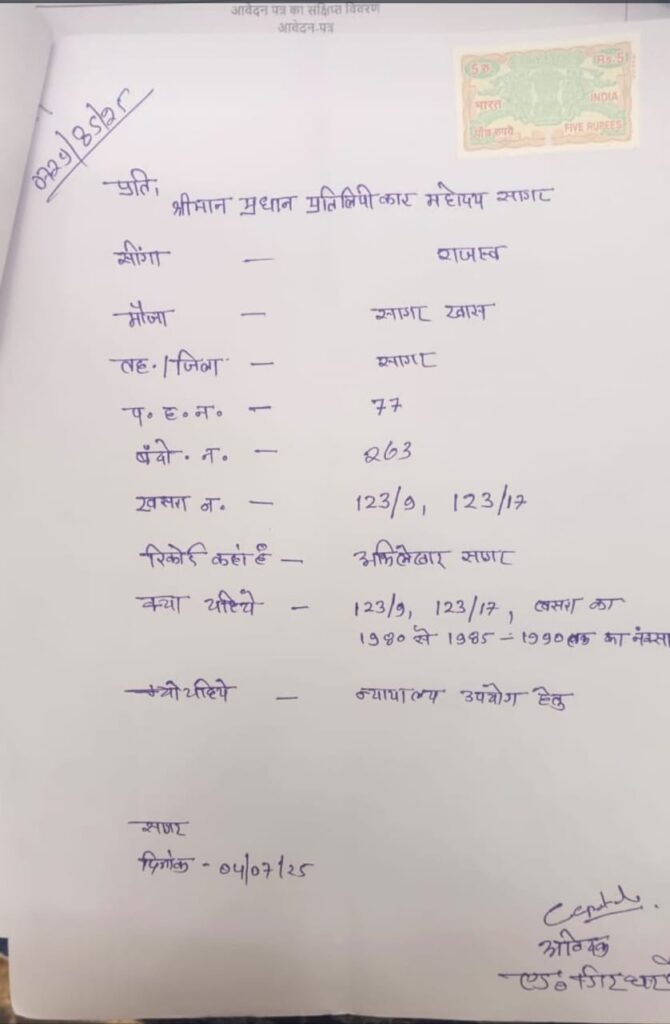 आवेदन पत्र का संक्षिप्त विवरण
आवेदन-पत्र
5 रु. Rs.5
भारत INDIA
पाँच रुपये FIVE RUPEES
प्रति,
श्रीमान प्रधान प्रतिलिपीकार महोदय सागर
सींगा — राजस्व
मौजा — सागर खास
तह./जिला — सागर
प. ह. न. — 77
बंदो. न. — 263
खसरा न. — 123/9, 123/17
रिकोर्ड कहां है — अभिलेखागार सागर
क्या चाहिये — 123/9, 123/17, खसरा का
1980 से 1985 - 1990 तक का नक्सा
क्यो चाहिये — न्यायालय उपयोग हेतु
सागर
दिनांक - 04/07/25
आवेदक